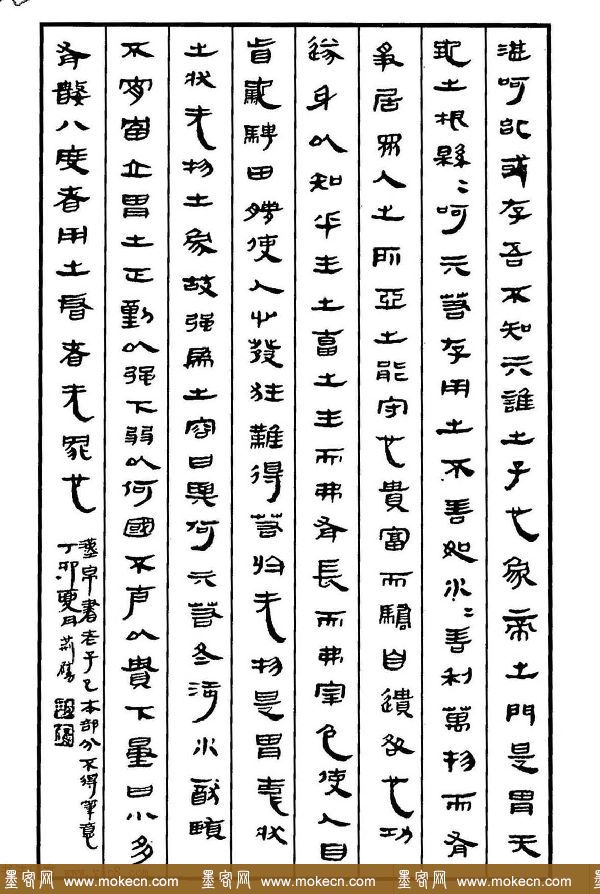 湛呵佁或存吾不知亓誰之子也象帝之門是胃天
地之根緜=呵亓若存用之不堇如水=善利萬物而有
爭居眾人之所亞之能守也貴富而驕自遺咎也功
遂身以知乎生之畜之生而弗有長而弗宰色使人目
盲馳騁田獵使人心發狂難得若歸无物是胃无狀
之狀无物之象故強為之容曰與何亓若冬涉水猷
不富立胃之正勤以強下弱以何國不克以貴下量曰小多
有八度者用之者无罪也
帛書老子乙本部分不得筆意
丁卯夏月荊
墨客网 www.mokecn.com 墨客网 www.mokecn.com 墨客网 www.mokecn.com 墨客网